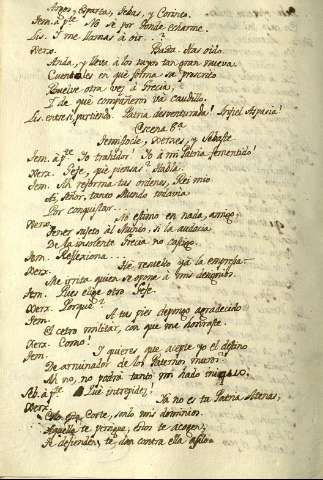 Argos, Esparta, Tebas, y Corinto.
Tem. á pte. No sé por donde echarme.
Lis. I me llamas á oir?
Xerx. Basta. Has oido.
Anda, y lleva á los tuyos tan gran nueva.
Cuentales en qué forma su proscrito
Vuelve otra vez á Grecia;
I de qué compañeros va caudillo.
Lis. entre si partiendo. Patria desventurada! Infiel Aspasia!
Escena 8ª
Temistocle, Xerxes, y Sebaste.
Tem. á pte. Yo traidor! Yo á mi Patria fementido!
Xerx. Jefe, qué piensas? Habla.
Tem. Ah reforma tus ordenes, Rei mio
Ai, Señor, tanto Mundo todavia
Por conquistar...
Xerx. No estimo en nada, amigo,
Tener sujeto al Mundo, si la audacia
De la insolente Grecia no castigo.
Tem. Reflexiona...
Xerx. He resuelto ya la empresa
Me irrita quien se opone á mis designios.
Tem. Pues elige otro Jefe.
Xerx. Porqué?
Tem. A tus pies depongo agradecido
El cetro militar, con que me honraste.
Xerx. Como!
Tem. I quieres que acepte yo el destino
De arruinador de los Paternos muros?
Ah no, no podrá tanto mi hado
Seb. á pte. Qué intrepidez!
Xerx. Ya no es tu Patria Atenas,
Corte, son los mis dominios.
Aquella te persigue, estos te acogen;
te dan contra ella asilo